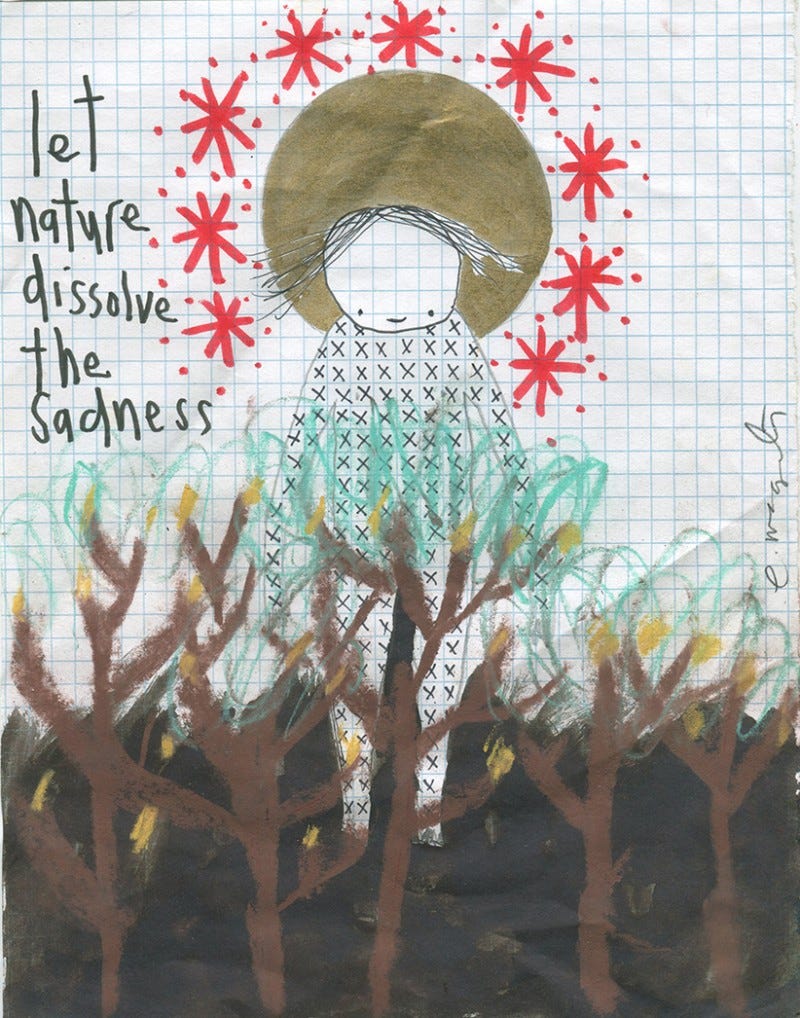 let
nature
dissolve
the
sadness